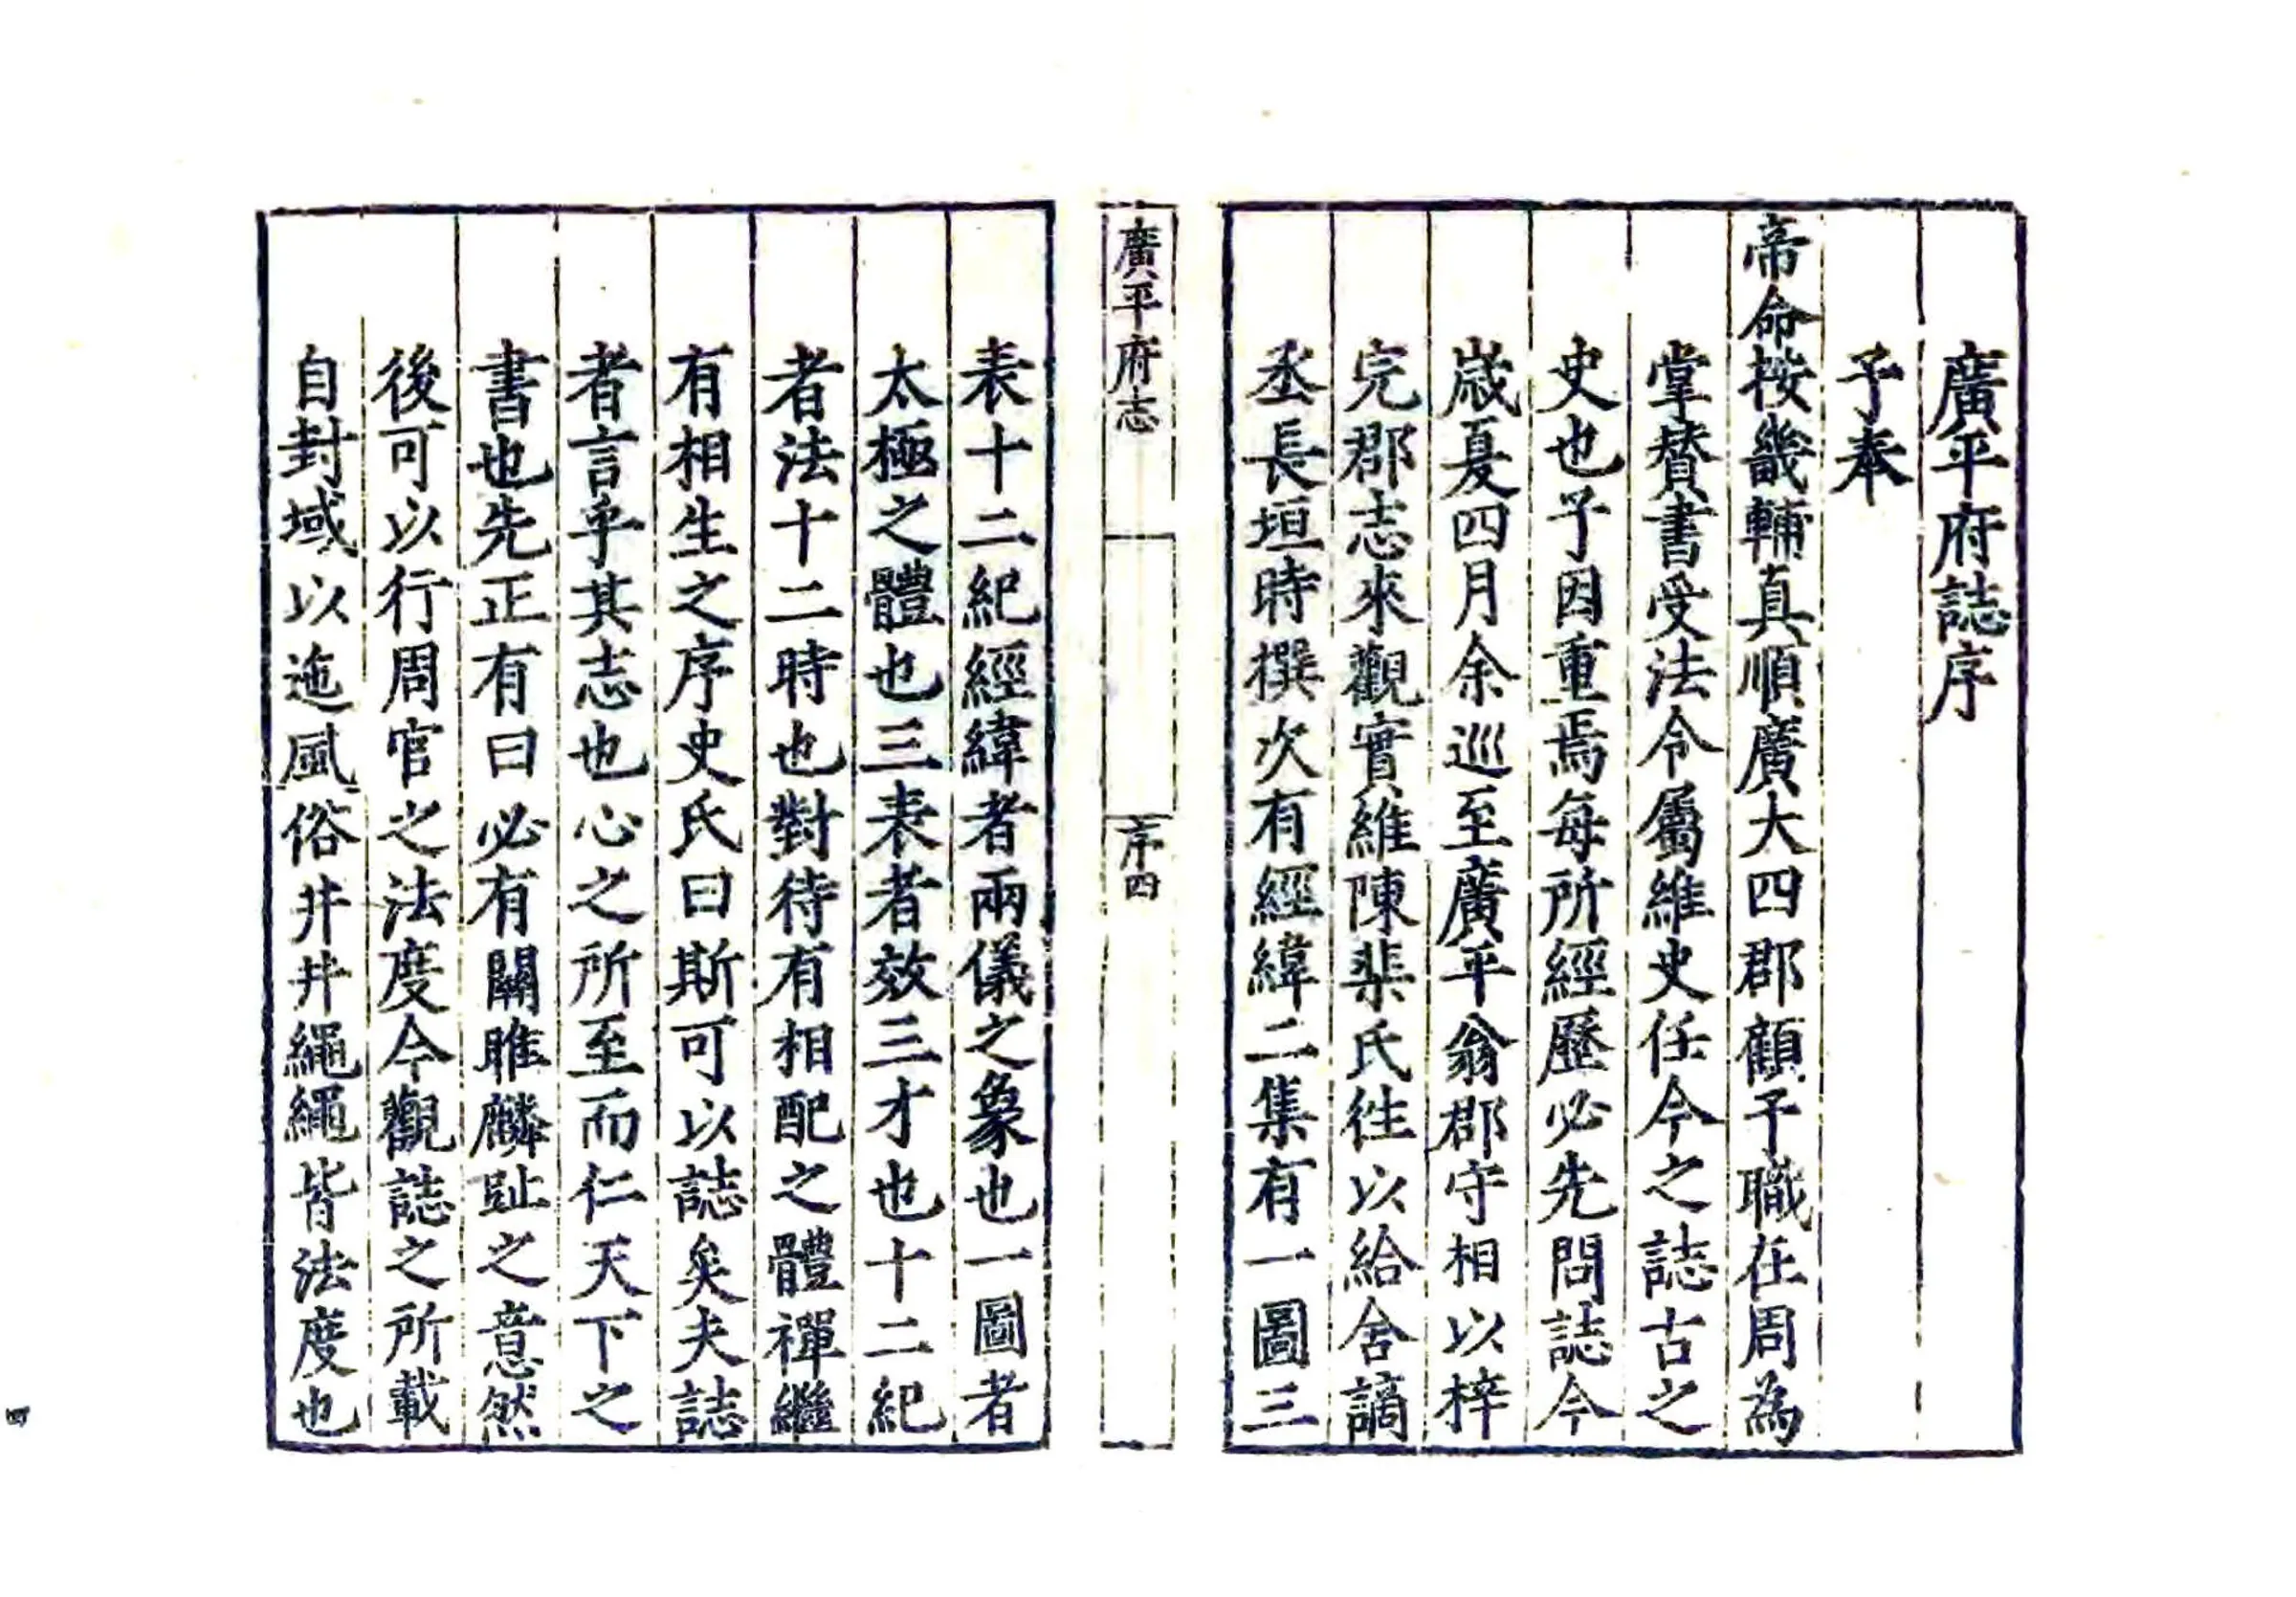 廣平府誌序
予奉
帝命按畿輔真順廣大四郡顧予職在周為
掌贊書受法令屬維史任今之誌古之
史也予因重焉每所經歷必先問誌今
歲夏四月余巡至廣平翁郡守相以梓
完郡志來觀實維陳棐氏徃以給舍謫
丞長垣時撰次有經緯二集有一圖三
廣平府志
序四
表十二紀經緯者兩儀之象也一圖者
太極之體也三表者效三才也十二紀
者法十二時也對待有相配之體禪繼
有相生之序史氏曰斯可以誌矣夫誌
者言乎其志也心之所至而仁天下之
書也先正有曰必有關雎麟趾之意然
後可以行周官之法度今觀誌之所載
自封域以迄風俗井井繩繩皆法度也
四